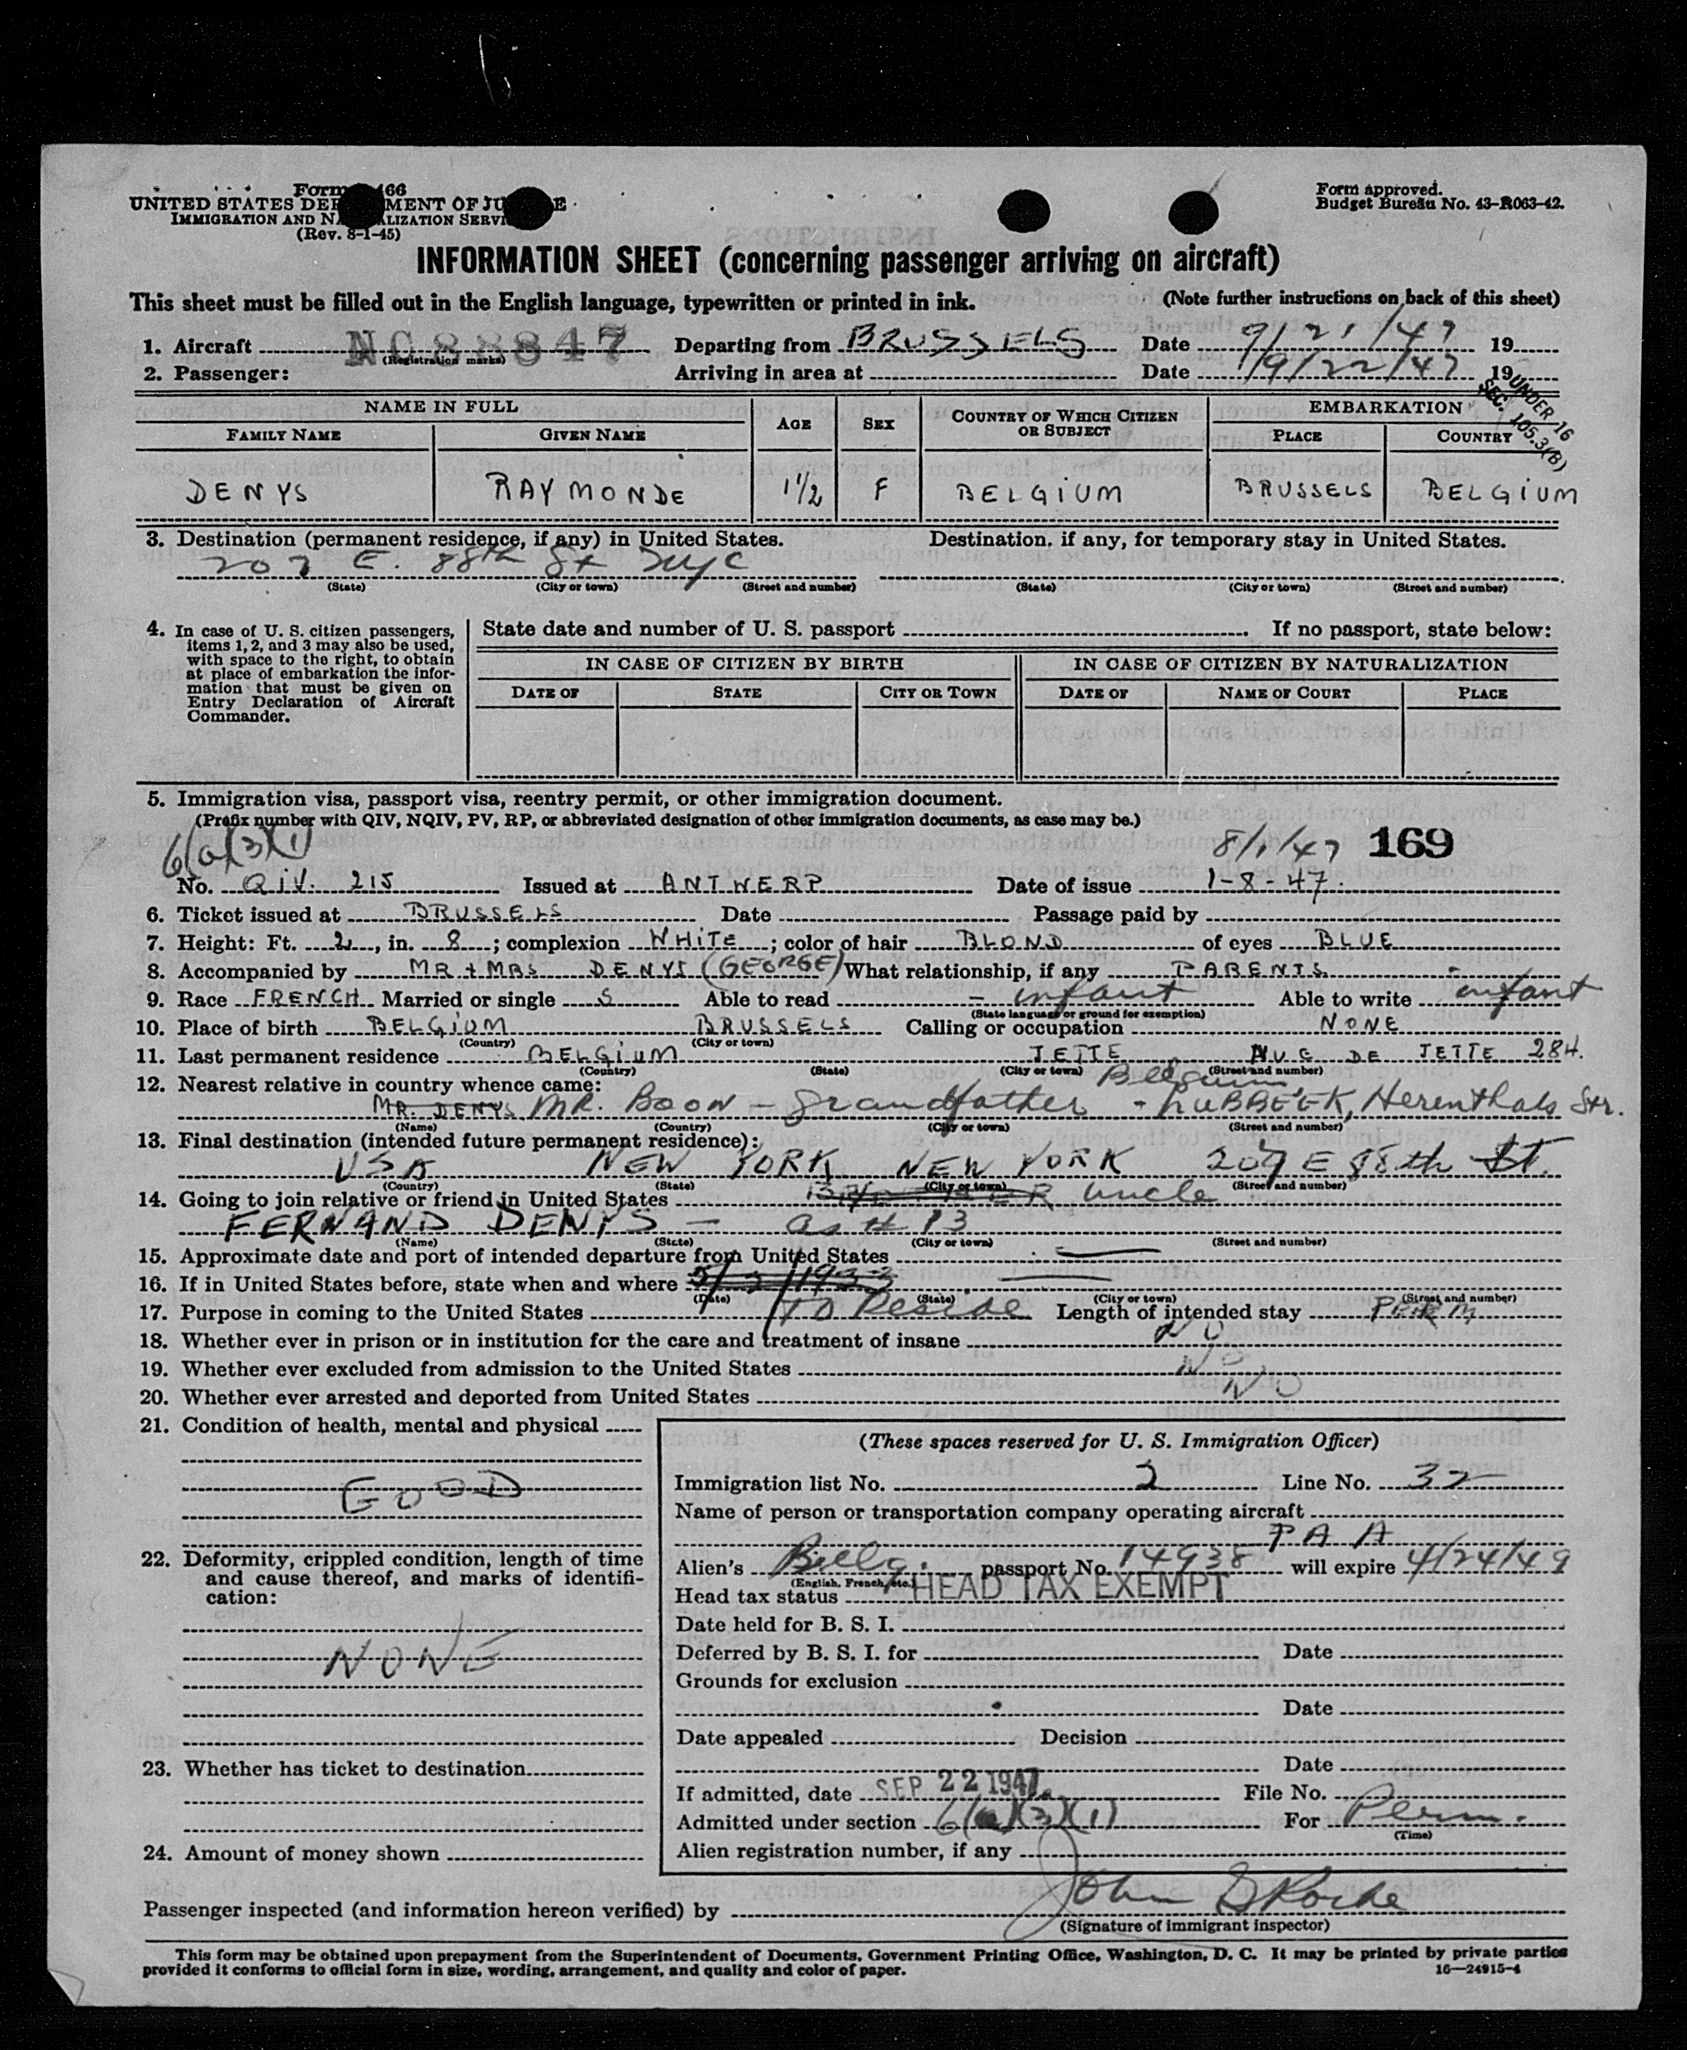 Form 466
UNITED STATES DEPARTMENT OF JUSTICE
IMMIGRATION AND NATURALIZATION SERVICE
(Rev. 8-1-45)
Form approved.
Budget Bureau No. 43-R063-42.
INFORMATION SHEET (concerning passenger arriving on aircraft)
This sheet must be filled out in the English language, typewritten or printed in ink. (Note further instructions on back of this sheet)
1. Aircraft NC88847 Departing from BRUSSELS Date 9/21/47 19
(Registration marks)
2. Passenger: Arriving in area at Date 9/22/47 19
UNDER 16
SEC. 105.3(B)
NAME IN FULL AGE SEX COUNTRY OF WHICH CITIZEN OR SUBJECT EMBARKATION
FAMILY NAME GIVEN NAME PLACE COUNTRY
DENYS RAYMONDE 1½ F BELGIUM BRUSSELS BELGIUM
3. Destination (permanent residence, if any) in United States. Destination, if any, for temporary stay in United States.
207 E. 88th St NYC
(State) (City or town) (Street and number) (State) (City or town) (Street and number)
4. In case of U. S. citizen passengers, items 1, 2, and 3 may also be used, with space to the right, to obtain at place of embarkation the information that must be given on Entry Declaration of Aircraft Commander.
State date and number of U. S. passport . If no passport, state below:
IN CASE OF CITIZEN BY BIRTH IN CASE OF CITIZEN BY NATURALIZATION
DATE OF STATE CITY OR TOWN DATE OF NAME OF COURT PLACE
5. Immigration visa, passport visa, reentry permit, or other immigration document.
(Prefix number with QIV, NQIV, PV, RP, or abbreviated designation of other immigration documents, as case may be.)
6(a)(3)(1) 8/1/47 169
No. QIV. 215 Issued at ANTWERP Date of issue 1-8-47.
6. Ticket issued at BRUSSELS Date Passage paid by
7. Height: Ft. 2, in. 8; complexion WHITE; color of hair BLOND of eyes BLUE
8. Accompanied by MR + MRS DENYS (GEORGE) What relationship, if any PARENTS
9. Race FRENCH Married or single S Able to read - infant Able to write infant
(State language or ground for exemption)
10. Place of birth BELGIUM BRUSSELS Calling or occupation NONE
(Country) (City or town)
11. Last permanent residence BELGIUM JETTE AVE DE JETTE 284.
(Country) (State) (City or town) (Street and number)
12. Nearest relative in country whence came: Belgium
MR. DENYS MR. BOON - grandfather - LUBBEEK, Herenthals Str.
(Name) (Country) (City or town) (Street and number)
13. Final destination (intended future permanent residence):
USA NEW YORK NEW YORK 207 E 88th St.
(Country) (State) (City or town) (Street and number)
14. Going to join relative or friend in United States uncle
FERNAND DENYS - as # 13
(Name) (State) (City or town) (Street and number)
15. Approximate date and port of intended departure from United States
16. If in United States before, state when and where
(Date) (State) (City or town) (Street and number)
17. Purpose in coming to the United States TO Reside Length of intended stay PERM
18. Whether ever in prison or in institution for the care and treatment of insane NO
19. Whether ever excluded from admission to the United States NO
20. Whether ever arrested and deported from United States NO
21. Condition of health, mental and physical
GOOD
22. Deformity, crippled condition, length of time and cause thereof, and marks of identification:
NONE
23. Whether has ticket to destination
24. Amount of money shown
(These spaces reserved for U. S. Immigration Officer)
Immigration list No. 2 Line No. 32
Name of person or transportation company operating aircraft
PAA
Alien's Belg. passport No. 14938 will expire 4/24/49
(English, French, etc.)
Head tax status HEAD TAX EXEMPT
Date held for B. S. I.
Deferred by B. S. I. for Date
Grounds for exclusion
Date
Date appealed Decision
Date
If admitted, date SEP 22 1947 File No.
Admitted under section 6(a)(3)(1) For Perm.
(Time)
Alien registration number, if any
Passenger inspected (and information hereon verified) by John G Roche
(Signature of immigrant inspector)
This form may be obtained upon prepayment from the Superintendent of Documents, Government Printing Office, Washington, D. C. It may be printed by private parties
provided it conforms to official form in size, wording, arrangement, and quality and color of paper. 16—24915-4